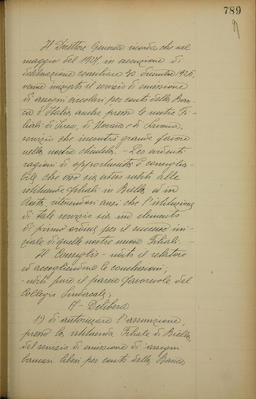 789
Il Direttore Generale ricorda che nel
maggio del 1927, in esecuzione di
deliberazione consiliare 30 dicembre 1926,
venne iniziato il servizio di emissione
di assegni circolari per conto della Ban
ca d'Italia anche presso le nostre Fi
liali di Lecco, di Novara e di Savona,
servizio che incontra grande favore
nella nostra clientela. - Per evidenti
ragioni di opportunità è consiglia-
bile che esso sia esteso subito alle
istituende Filiali in Biella ed in
Aosta, ritenendosi anzi che l'istituzione
di tale servizio sia un elemento
di primo ordine per il successo ini-
ziale di quelle nostre nuove Filiali. -
Il Consiglio - udito il relatore
ed accogliendone le conclusioni;
- udito pure il parere favorevole del
Collegio Sindacale;
Delibera
1°) di autorizzare l'assunzione,
presso la istituenda Filiale di Biella,
del servizio di emissione di assegni
bancari liberi per conto della Banca